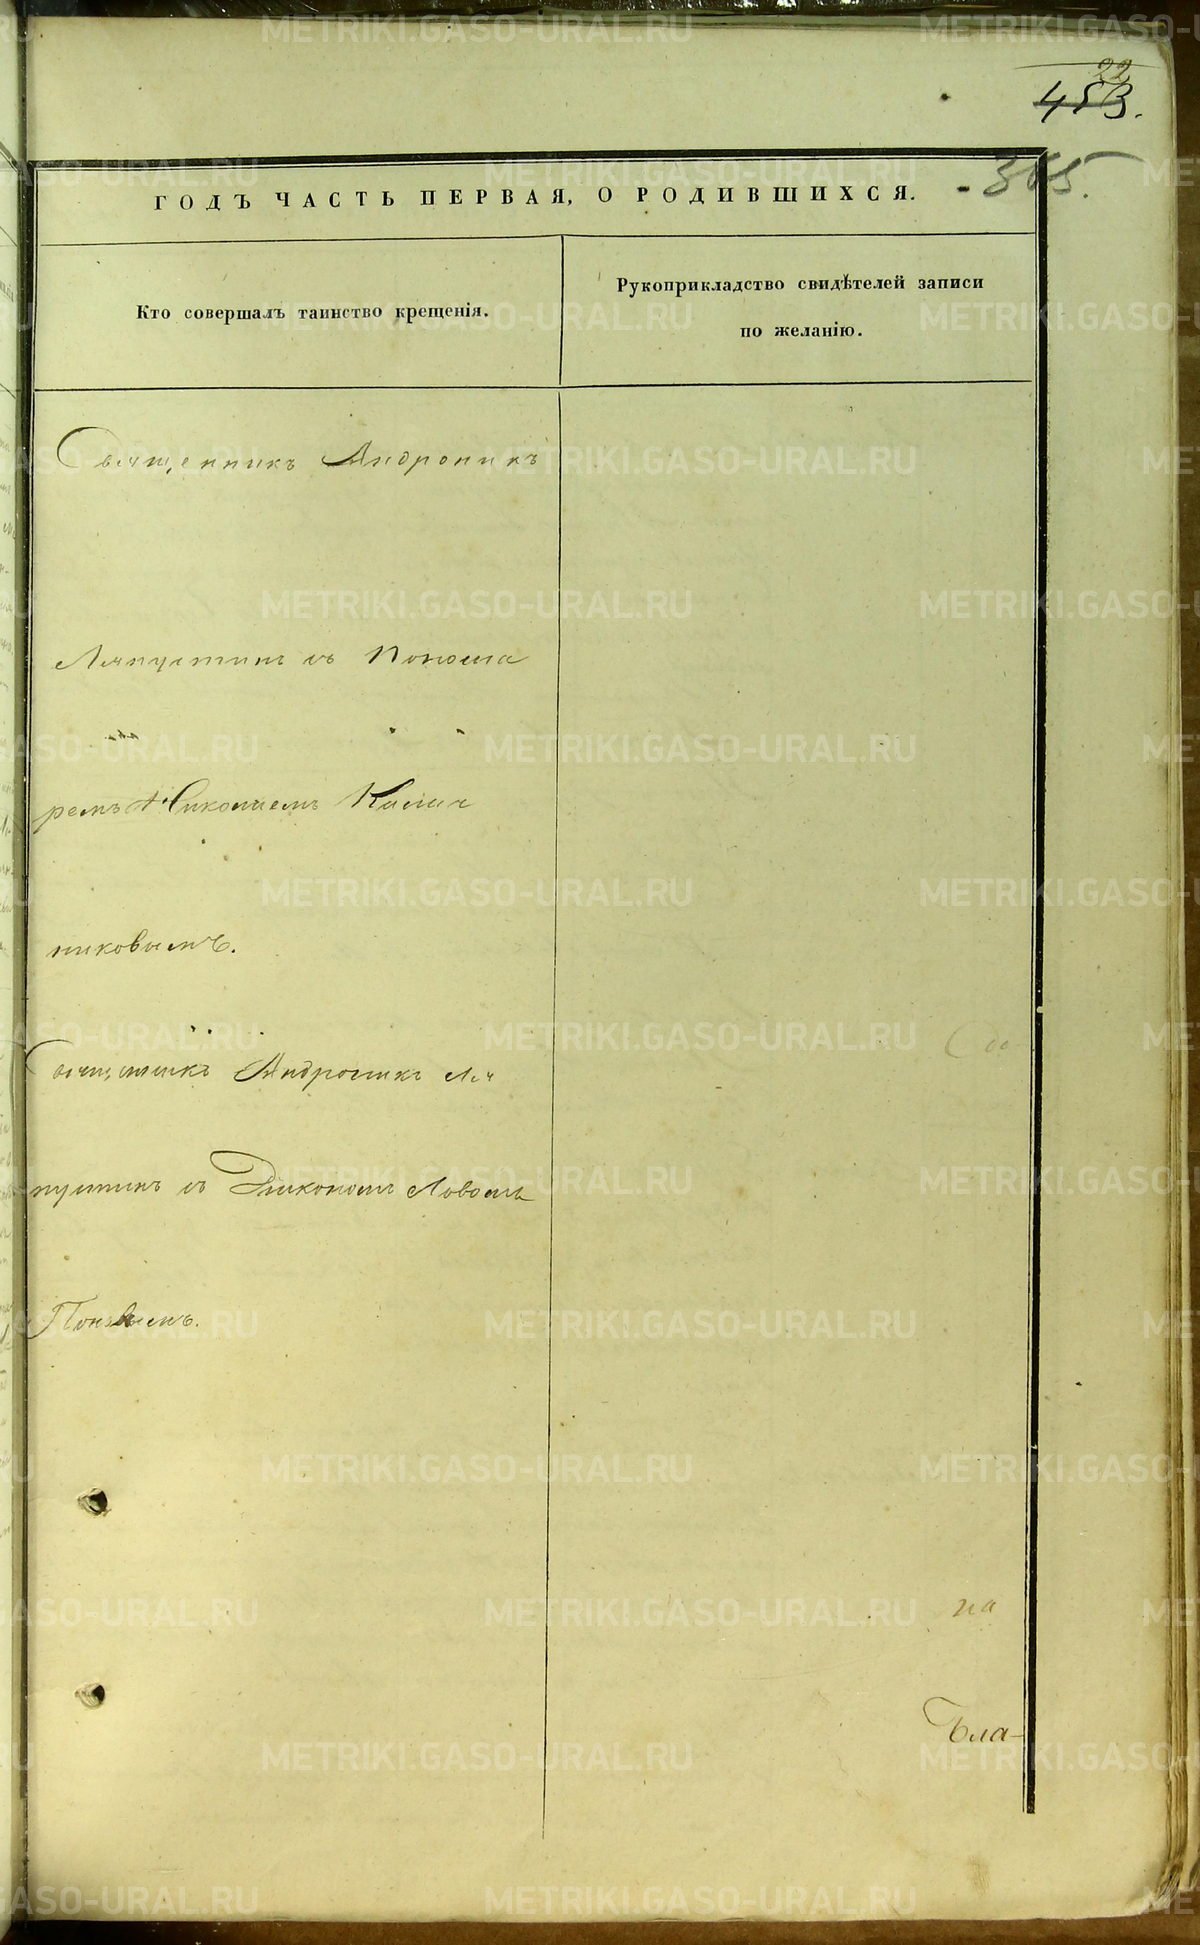 22
453.
365.
ГОДЪ ЧАСТЬ ПЕРВАЯ, О РОДИВШИХСЯ.
Кто совершалъ таинство крещенія.
Рукоприкладство свидѣтелей записи
по желанію.
Священникъ Андроникъ
Ляпустинъ съ Понома
ремъ Николаемъ Калач
никовымъ.
Священникъ Андроникъ Ля
пустинъ съ Дьякономъ
Поповымъ.
на
Бла-
METRIKI.GASO-URAL.RU